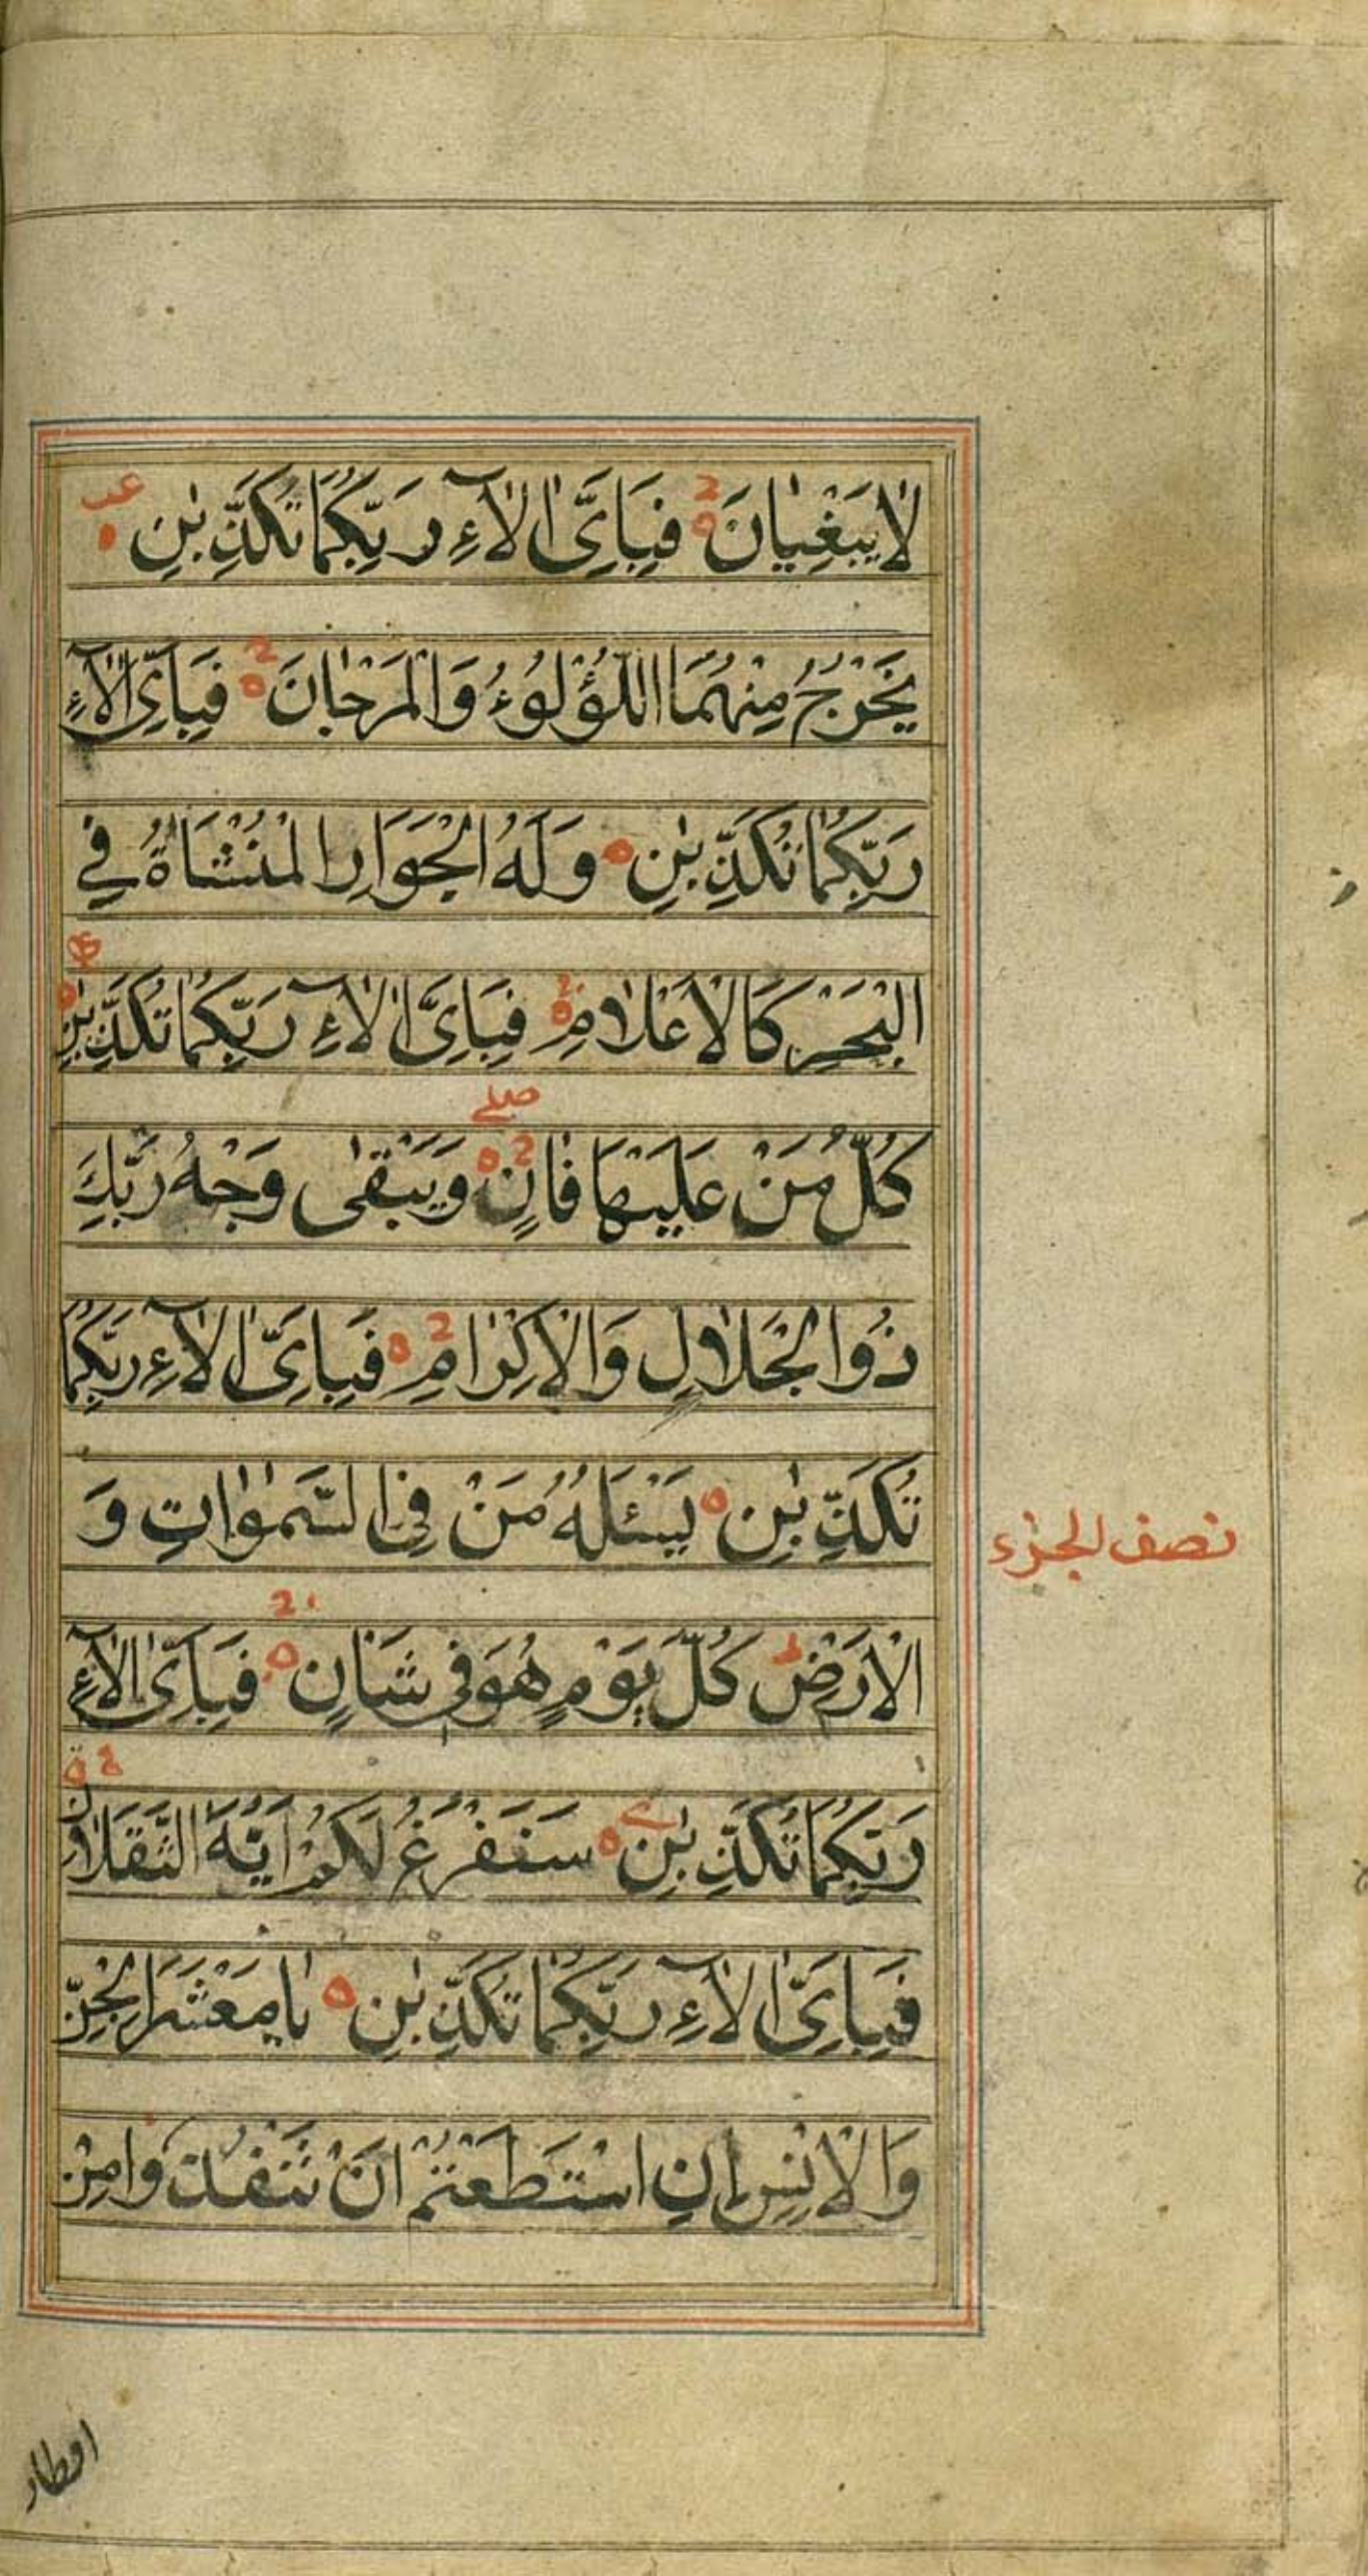 لَا يَبْغِيَانِ فَبِاَيِّ اٰلَآءِ رَبِّكُمَا تُكَذِّبٰنِ عب
يَخْرُجُ مِنْهُمَا اللُّؤْلُوءُ وَالْمَرْجَانُ فَبِاَيِّ اٰلَآءِ
رَبِّكُمَا تُكَذِّبٰنِ وَلَهُ الْجَوَارِ الْمُنْشَاٰةُ فِي
الْبَحْرِ كَالْاَعْلَامِ فَبِاَيِّ اٰلَآءِ رَبِّكُمَا تُكَذِّبٰنِ
صلے
كُلُّ مَنْ عَلَيْهَا فَانٍ وَيَبْقٰى وَجْهُ رَبِّكَ
ذُوا الْجَلَالِ وَالْاِكْرَامِ فَبِاَيِّ اٰلَآءِ رَبِّكُمَا
تُكَذِّبٰنِ يَسْئَلُهُ مَنْ فِي السَّمٰوَاتِ وَ
نصف الجزء
الْاَرْضِ ط كُلَّ يَوْمٍ هُوَ فِي شَاْنٍ فَبِاَيِّ اٰلَآءِ
رَبِّكُمَا تُكَذِّبٰنِ سَنَفْرُغُ لَكُمْ اَيُّهَ الثَّقَلَانِ
فَبِاَيِّ اٰلَآءِ رَبِّكُمَا تُكَذِّبٰنِ يَا مَعْشَرَ الْجِنِّ
وَالْاِنْسِ اِنِ اسْتَطَعْتُمْ اَنْ تَنْفُذُوا مِنْ
اقطار